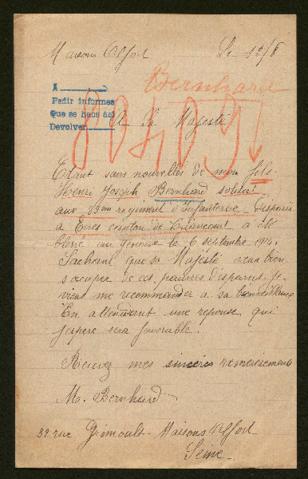 Maisons Alfort Le 12/8
A
Pedir informes
Que se haga así
Devolver
Bernhard
80409
A Sa Majesté
Etant sans nouvelles de mon fils
Henri Joseph Bernhard soldat
aux regiment d'infanterie disparu
a canton de a été
le 6 septembre
Sachant que sa Majesté
s'occupe de ces disparus je
vient me recommander a sa bienveillance
En attendant une reponse qui
j'espere sera favorable.
Recevez mes sincères remerciements
M. Bernhard
39 rue Grimoult Maisons Alfort
Seine